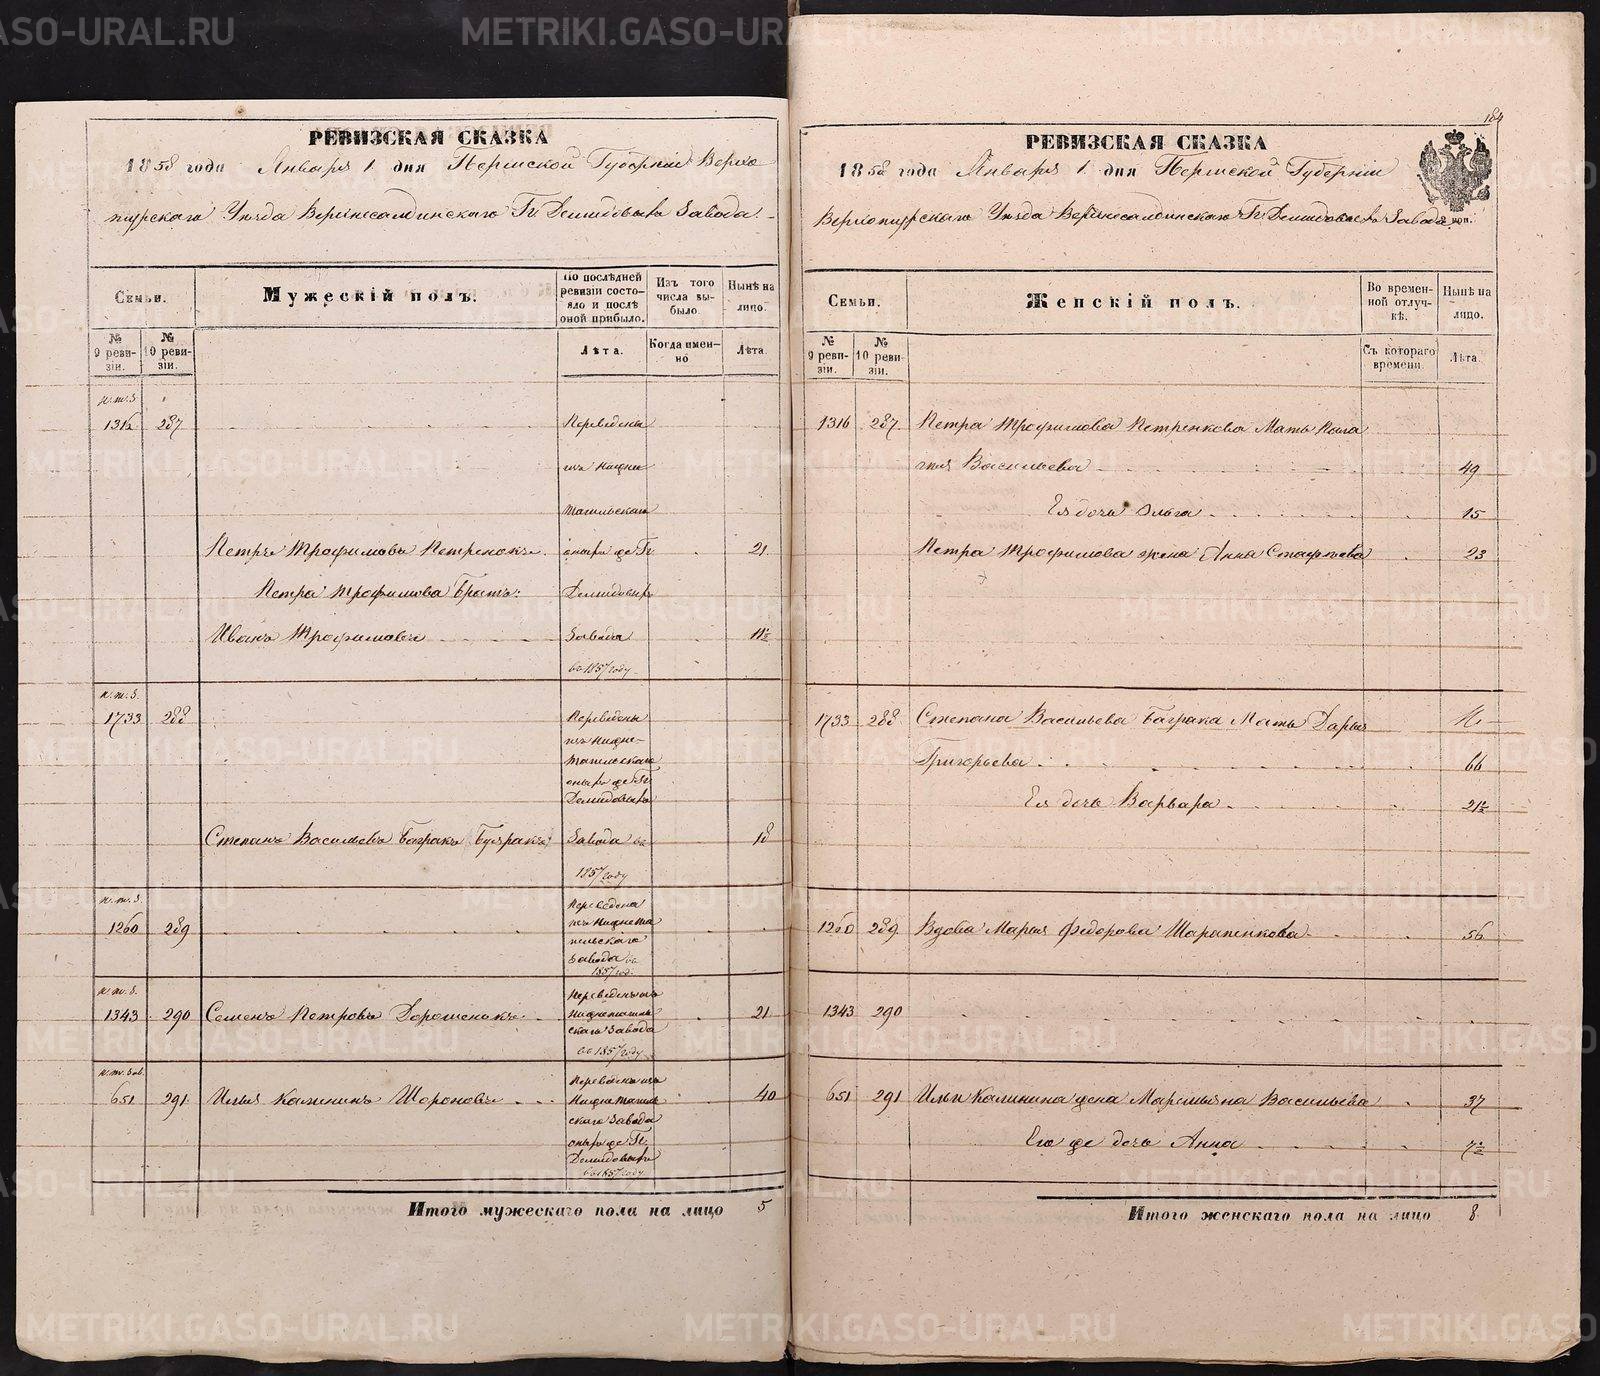 РЕВИЗСКАЯ СКАЗКА
1858 года Января 1 дня Пермской Губерніи Верхо
турскаго Уѣзда Верхнесалдинскаго Гг Демидовыхъ Завода
Семьи.
Мужескій полъ.
По послѣдней ревизіи состояло и послѣ оной прибыло.
Изъ того числа выбыло.
Нынѣ на лицо.
№ 9 ревизіи.
№ 10 ревизіи.
Лѣта.
Когда именно
Лѣта.
н.т.з.
1316 287 Переведены
изъ Нижне
тагильскаго
Петръ Трофимовъ Петренокъ. оныхъ же Гг 21
Петра Трофимова Братъ: Демидовыхъ
Иванъ Трофимовъ Завода 11½
въ 1857 году
н.т.з.
1733 288 Переведены
изъ Нижне-
тагильскаго
оныхъ же Гг
Демидовыхъ
Степанъ Васильевъ Багракъ (Бугракъ) Завода въ 18
1857 году
н.т.з.
1260 289 Переведена
изъ Нижнета
гильскаго
Завода въ
1857 год.
н.т.з.
1343 290 Семенъ Петровъ Дорошенокъ. Переведенъ изъ 21
Нижнетагиль
скаго Завода
въ 1857 году
н.т. зав.
651 291 Илья Калининъ Шороновъ Переведенъ изъ 40
Нижнетагил
скаго Завода
оныхъ же Гг.
Демидовыхъ
въ 1857 году
Итого мужескаго пола на лицо 5
184
РЕВИЗСКАЯ СКАЗКА
1858 года Января 1 дня Пермской Губерніи
Верхотурскаго Уѣзда Верхнесалдинскаго Гг Демидовыхъ Завода
коп.
Семьи.
Женскій полъ.
Во временной отлучкѣ.
Нынѣ на лицо.
№ 9 ревизіи.
№ 10 ревизіи.
Съ котораго времени.
Лѣта.
1316 287 Петра Трофимова Петренкова Мать Пала
гия Васильева 49
Ея дочь Ольга 15
Петра Трофимова жена Анна Стафѣева 23
1733 288 Степана Васильева Баграка Мать Дарья
Григорьева 66
Ея дочь Варвара 21½
1260 289 Вдова Марья Федорова Шарапенкова 56
1343 290
651 291 Ильи Калинина жена Маремьяна Васильева 37
Его же дочь Анна 7½
Итого женскаго пола на лицо 8.
METRIKI.GASO-URAL.RU